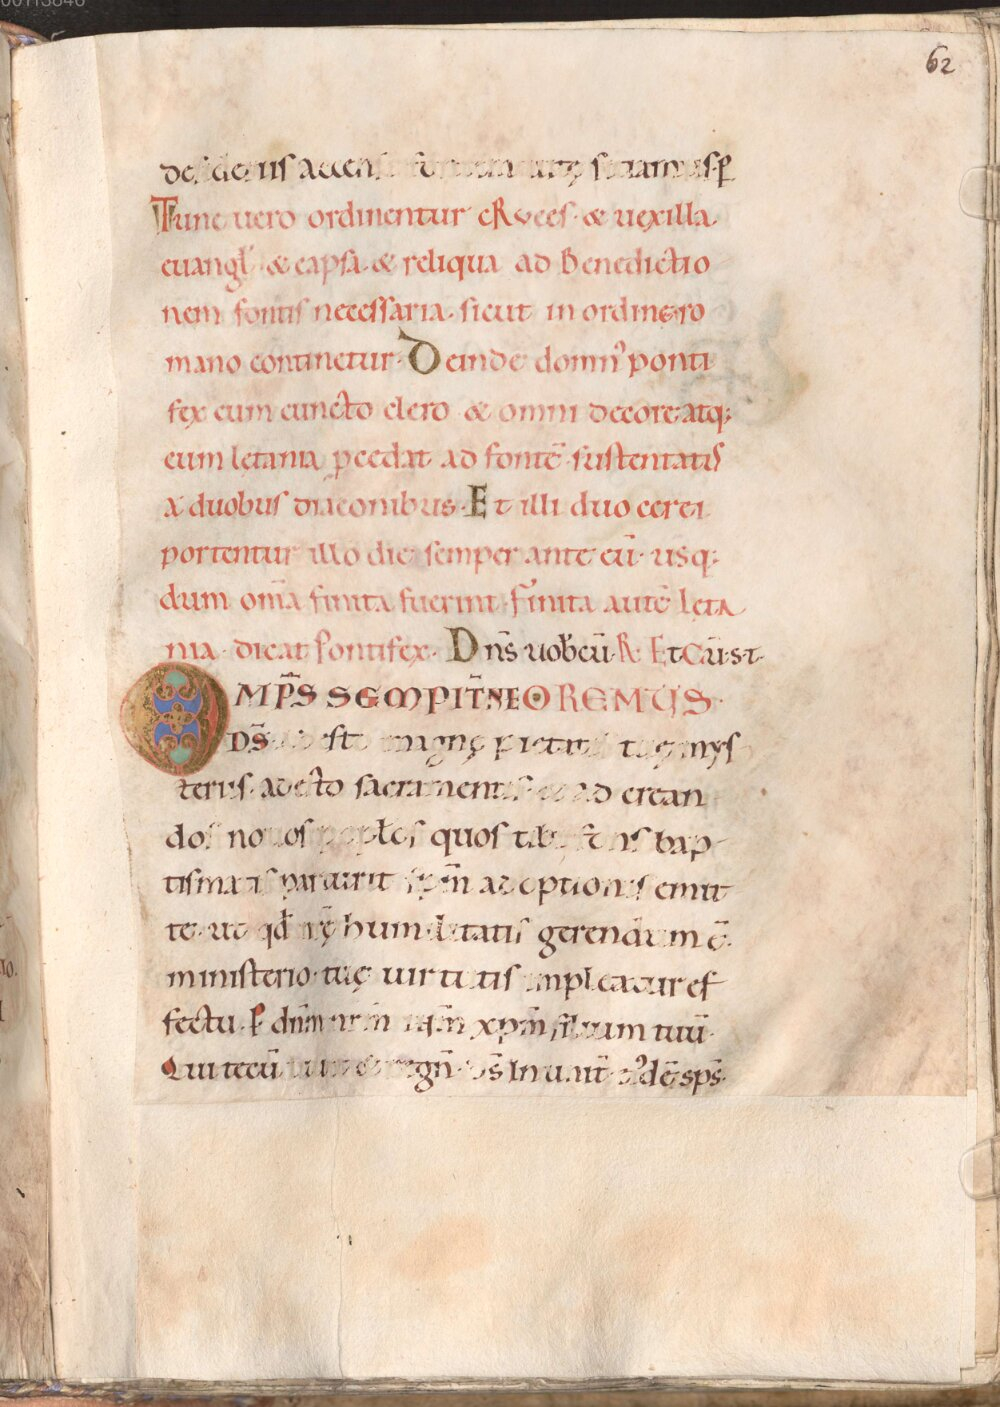 62
Tunc uero ordinentur cRvces· & uexilla
euangl̄· & capsa· & reliqua ad Benedictio
nem fontis necessaria· sicut in ordine ro
mano continetur· Deinde domn᾽ ponti
fex cum cuncto clero & omni decore atq;
cum letania p̄cedat ad fontē· sustentatis
a duobus diaconibus· Et illi duo cerei
portentur illo die semper ante eū· usq;
dum om̄a finita fuerint· Finita autē leta
nia· dicat Pontifex· Dn̄s uobcū R Et Cū·s·t·
OMP̄S SEMPIT̄NE OREMUS·
D̄S magnę pietatis tuę mys
teriis· adesto sacramentis· ad crean
dos nouos pop̄los quos fons bap
tismatis parturit sp̄m adoptionis emit
te· ut qd̄ humilitatis gerendum ē·
ministerio· tuę uirtutis impleatur ef
fectu· P dn̄m xp̄m filium tuū·
Qui tecū regn̄· d̄s In unit̄ dē sp̄s·